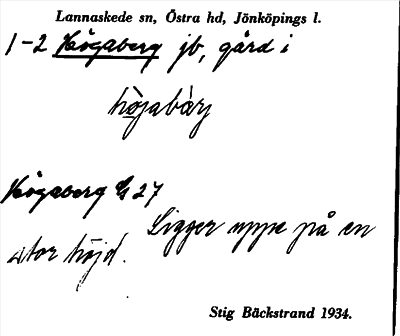 Lannaskede sn, Östra hd, Jönköpings l.
1-2 Högaberg jb, gård i
hö̀jabàrj
Högaberg G 27
Ligger uppe på en
stor höjd.
Stig Bäckstrand 1934.